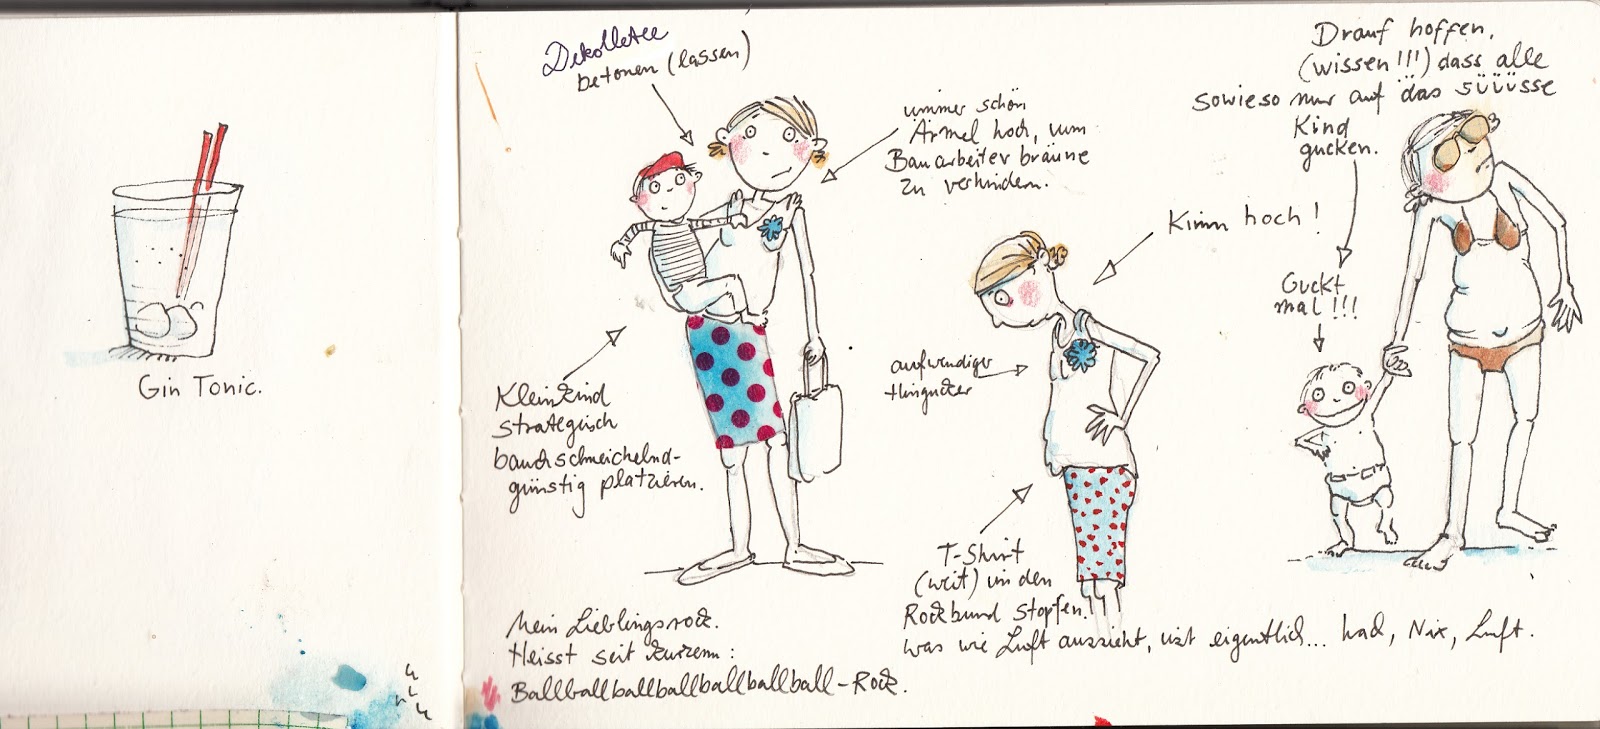 Gin Tonic.
Dekolletee
betonen (lassen)
immer schön
Ärmel hoch, um
Bauarbeiterbräune
zu verhindern.
Kleinkind
strategisch
bauchschmeichelnd-
günstig platzieren.
Mein Lieblingsrock.
Heisst seit kurzem:
Ballballballballballballball-Rock.
Kinn hoch!
aufwendiger
Hingucker
T-Shirt
(weit) in den
Rockbund stopfen!
was wie Luft aussieht, ist eigentlich... had, Nix, Luft.
Drauf hoffen,
(wissen!!!) dass alle
sowieso nur auf das süüüsse
Kind
gucken.
Guckt
mal!!!